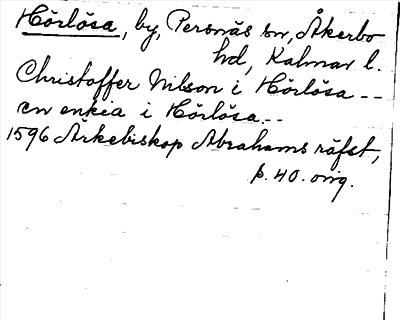 Hörlösa, by, Persnäs sn, Åkerbo
hd, Kalmar l.
Christoffer Nilson i Hörlösa --
en enkia i Hörlösa.--
1596 Ärkebiskop Abrahams räfst,
p. 40. orig.